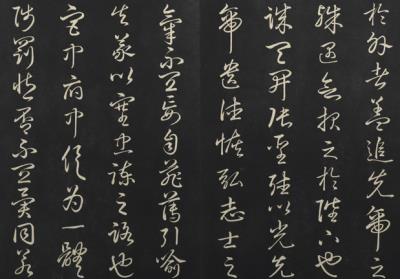 於外者蓋追先帝之
殊遇欲報之於陛下也
誠宜開張聖聽以光先
帝遺德恢弘志士之
氣不宜妄自菲薄引喻
失義以塞忠諫之路也
宮中府中俱為一體
陟罰臧否不宜異同若